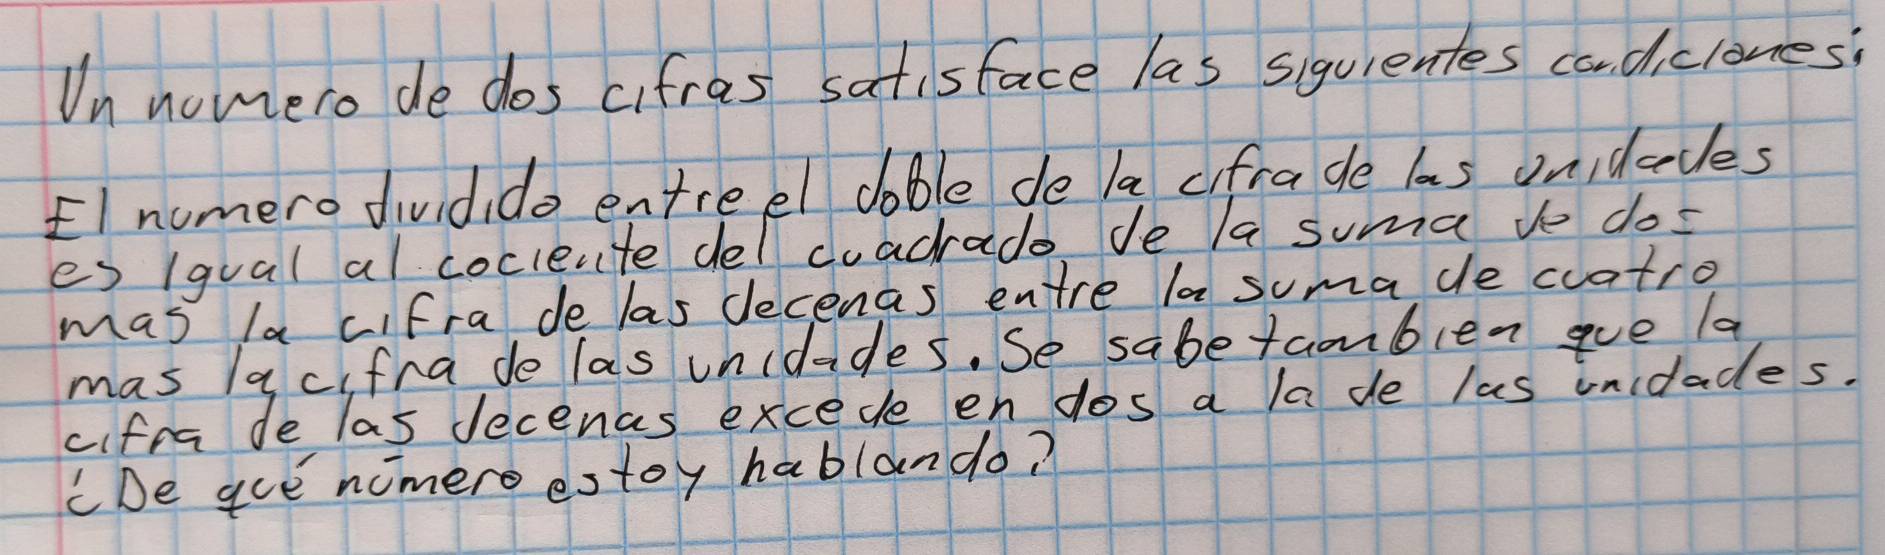 Un numero de dos cifras satisface las siguientes condiciones:
El numero dividido entre el doble de la cifra de las unidades
es igual al cociente del cuadrado de la suma de dos
mas la cifra de las decenas entre la suma de cuatro
mas la cifra de las unidades. Se sabe tambien que la
cifra de las decenas excede en dos a la de las unidades.
¿De qué número estoy hablando?